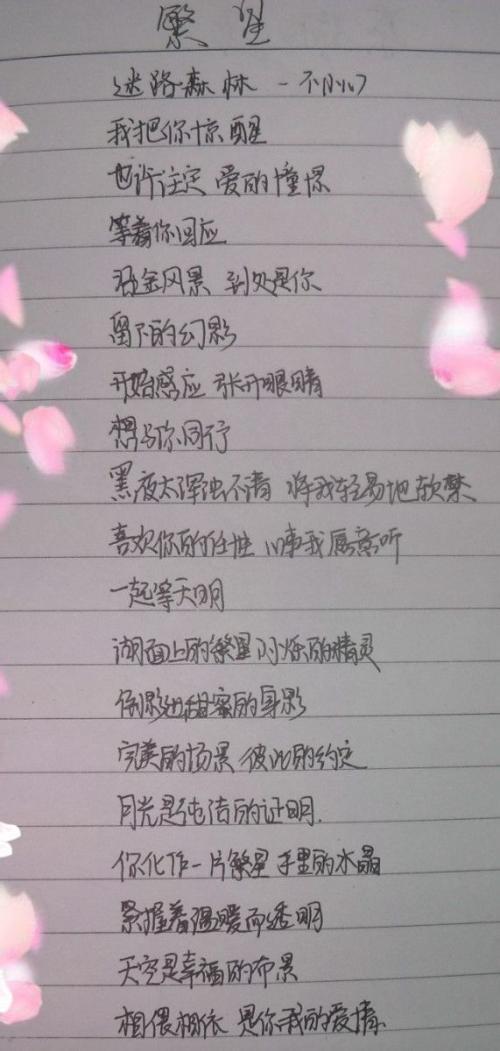 繁星
迷路森林 一不小心
我把你惊醒
也许注定 爱的憧憬
等着你回应
沿途风景 到处是你
留下的幻影
开始感应 张开眼睛
想与你同行
黑夜太浑浊不清 将我轻易地软禁
喜欢你的任性 心事我愿意听
一起等天明
湖面上的繁星 闪烁的精灵
倒影出甜蜜的身影
完美的场景 彼此的约定
月光是纯洁的证明.
你化作一片繁星 手里的水晶
紧握着温暖而透明
天空是幸福的布景
相偎相依 是你我的爱情.